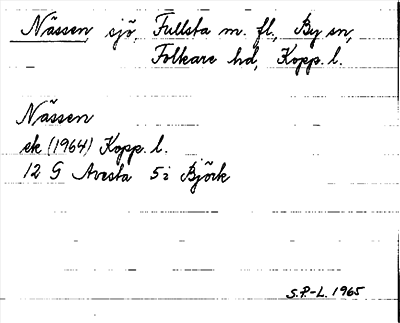 Nässen, sjö, Fullsta m. fl., By sn,
Folkare hd, Kopp. l.
Nässen
ek (1964) Kopp. l.
12 G Avesta 5 i Björk
S.P.-L. 1965